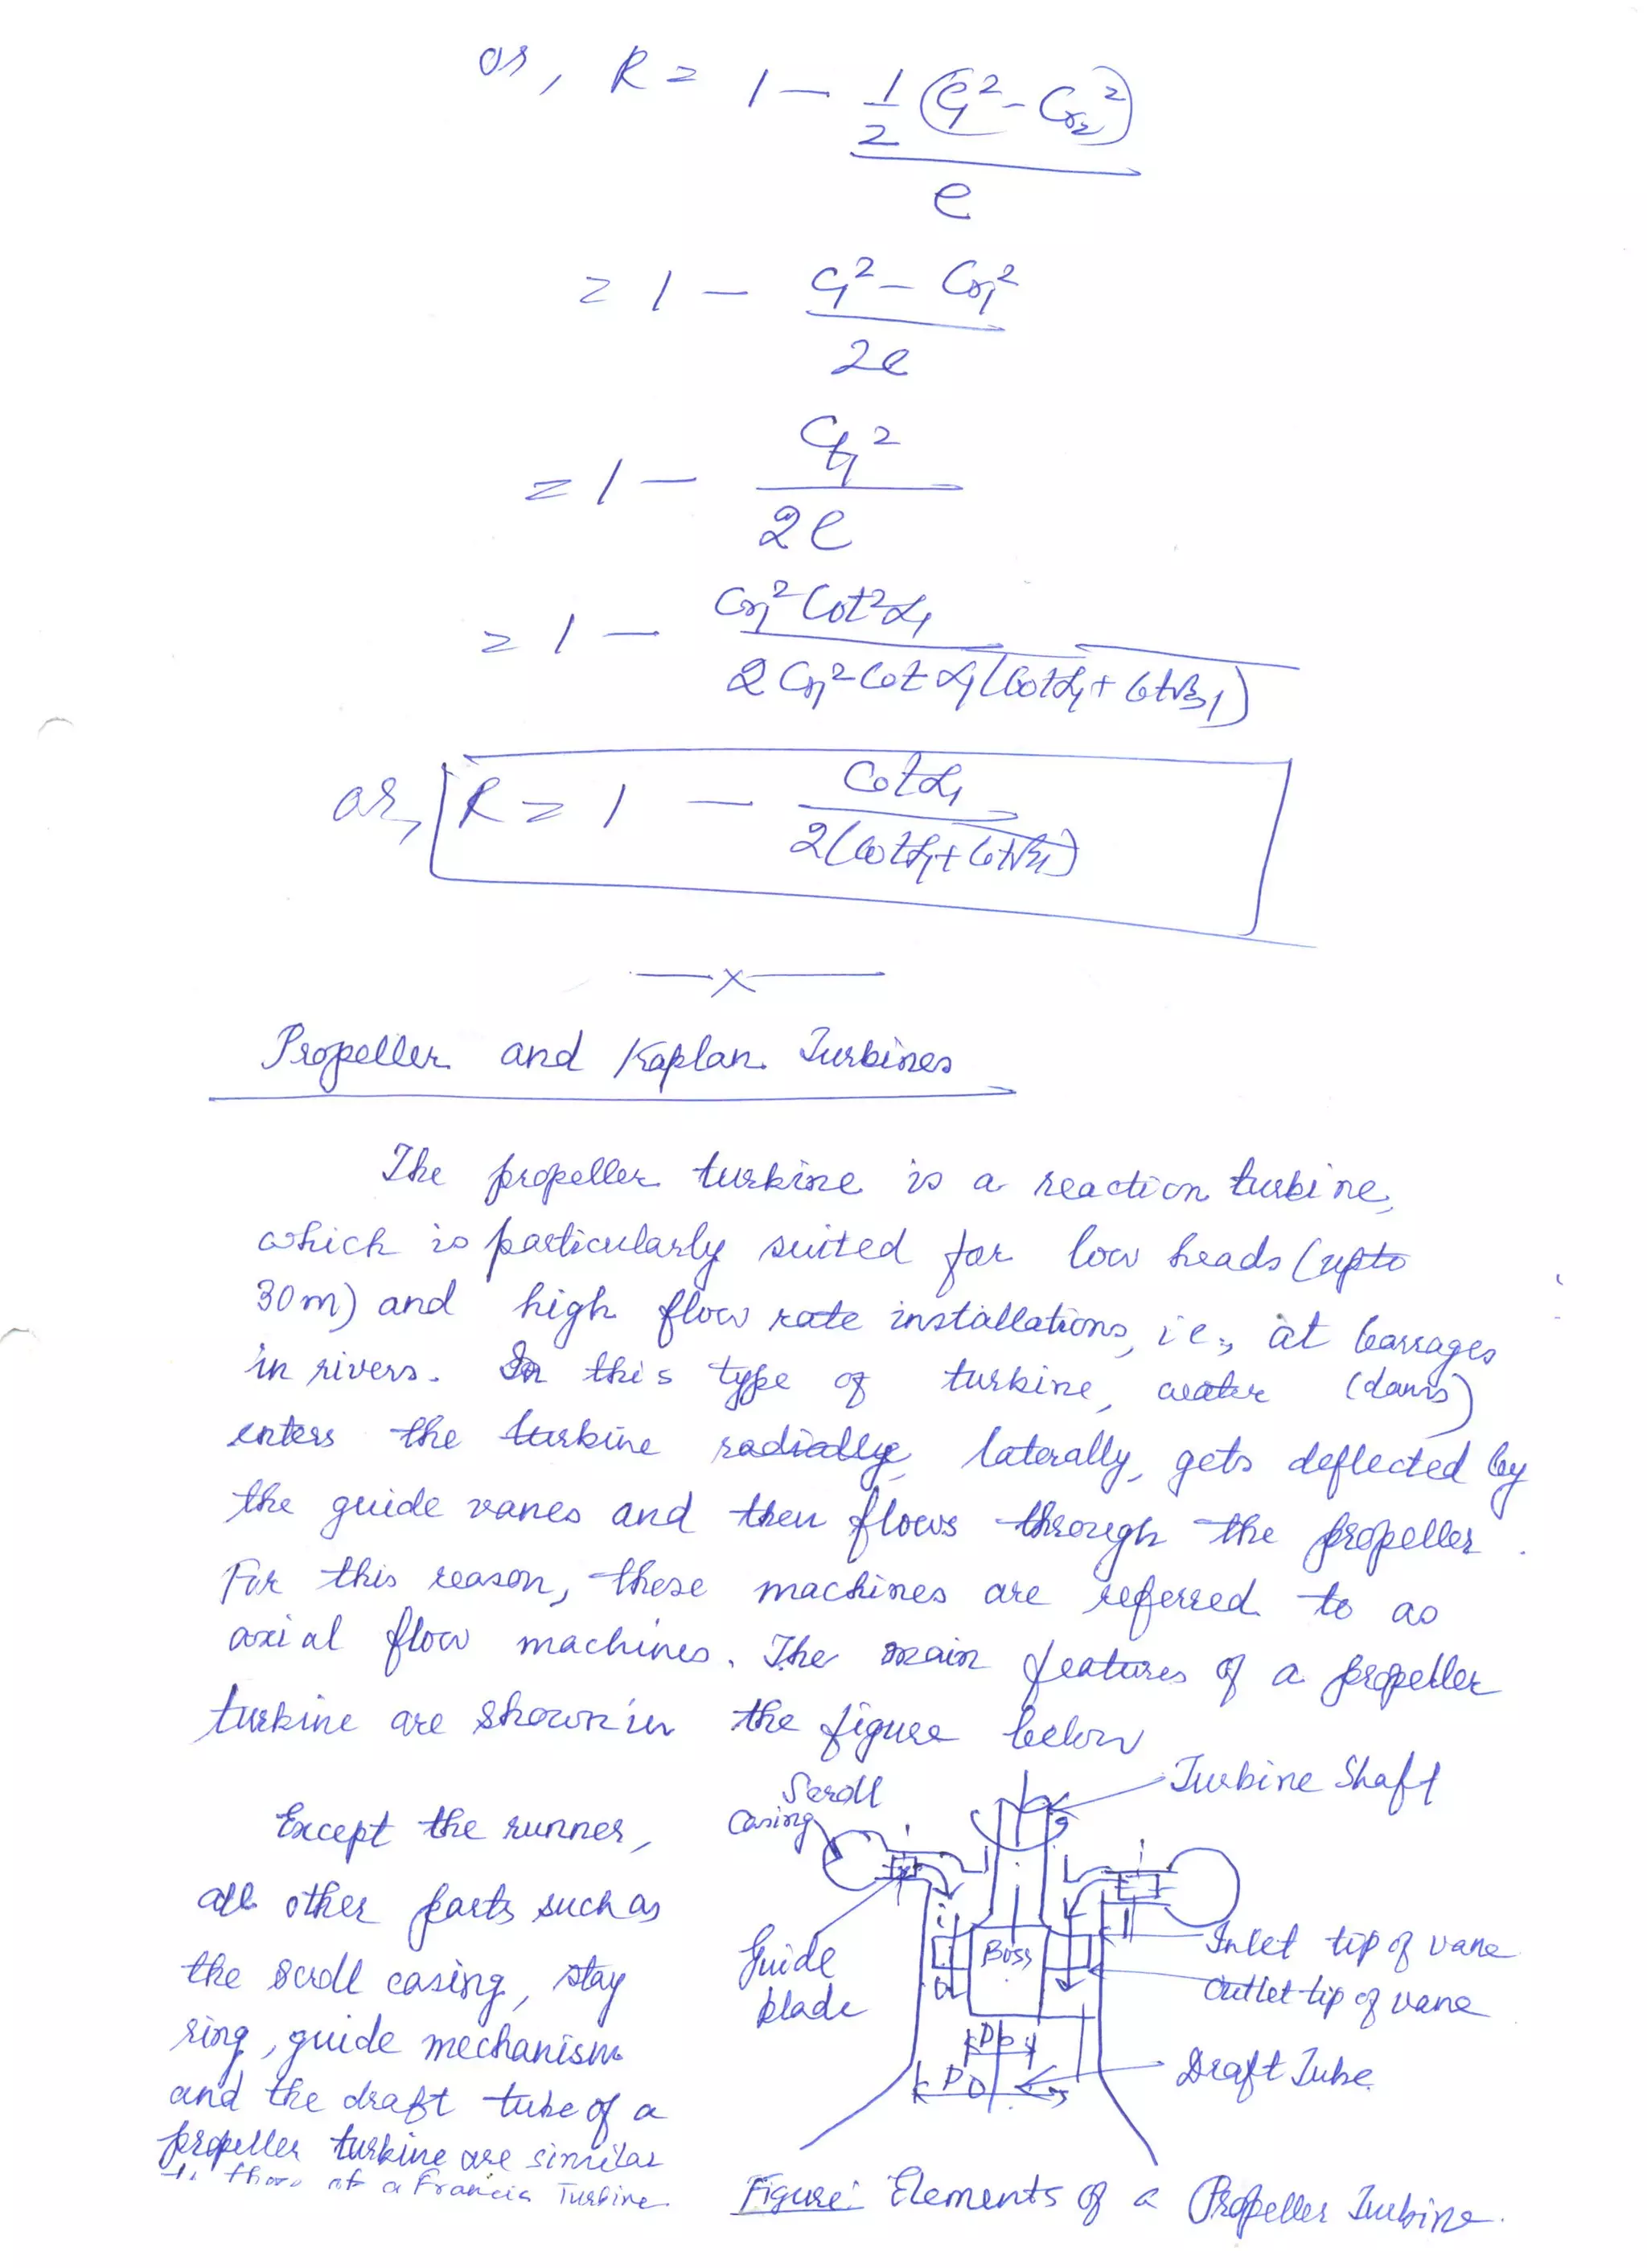 or, R = 1 - 1/2 (C₁² - Cr₂²) / e
= 1 - (C₁² - Cr₁²) / 2e
= 1 - Ct₁² / 2e
= 1 - Cr₁² Cot²α₁ / 2 Cr₁² Cot α₁ (Cotα₁ + Cotβ₁)
or, R = 1 - Cotα₁ / 2(Cotα₁ + Cotβ₁)
—x—
Propeller and Kaplan Turbines
The propeller turbine is a reaction turbine,
which is particularly suited for low heads (upto
30m) and high flow rate installations, i.e., at barrages
in rivers. In this type of turbine, water (dams)
enters the turbine radially, laterally, gets deflected by
the guide vanes and then flows through the propeller.
For this reason, these machines are referred to as
axial flow machines. The main features of a propeller
turbine are shown in the figure below
Except the runner,
all other parts such as
the scroll casing, stay
ring, guide mechanism
and the draft tube of a
propeller turbine are similar
to those of a Francis Turbine.
Scroll
Casing
Turbine Shaft
Guide
blade
Boss
Inlet tip of vane
Outlet tip of vane
Db
Do
Draft Tube
Figure: Elements of a Propeller Turbine.